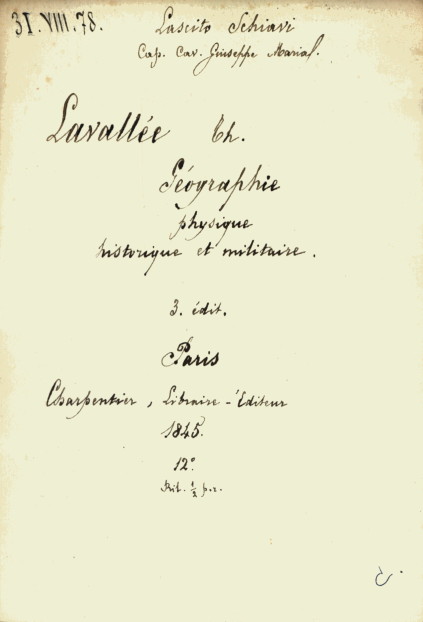 31.VIII.78.
Lascito Schiavi
Cap. Cav. Giuseppe Marial.
Lavallée Th.
Géographie
physique
historique et militaire.
3. édit.
Paris
Charpentier, Libraire-Éditeur
1845.
12°.
1/2 p.r.